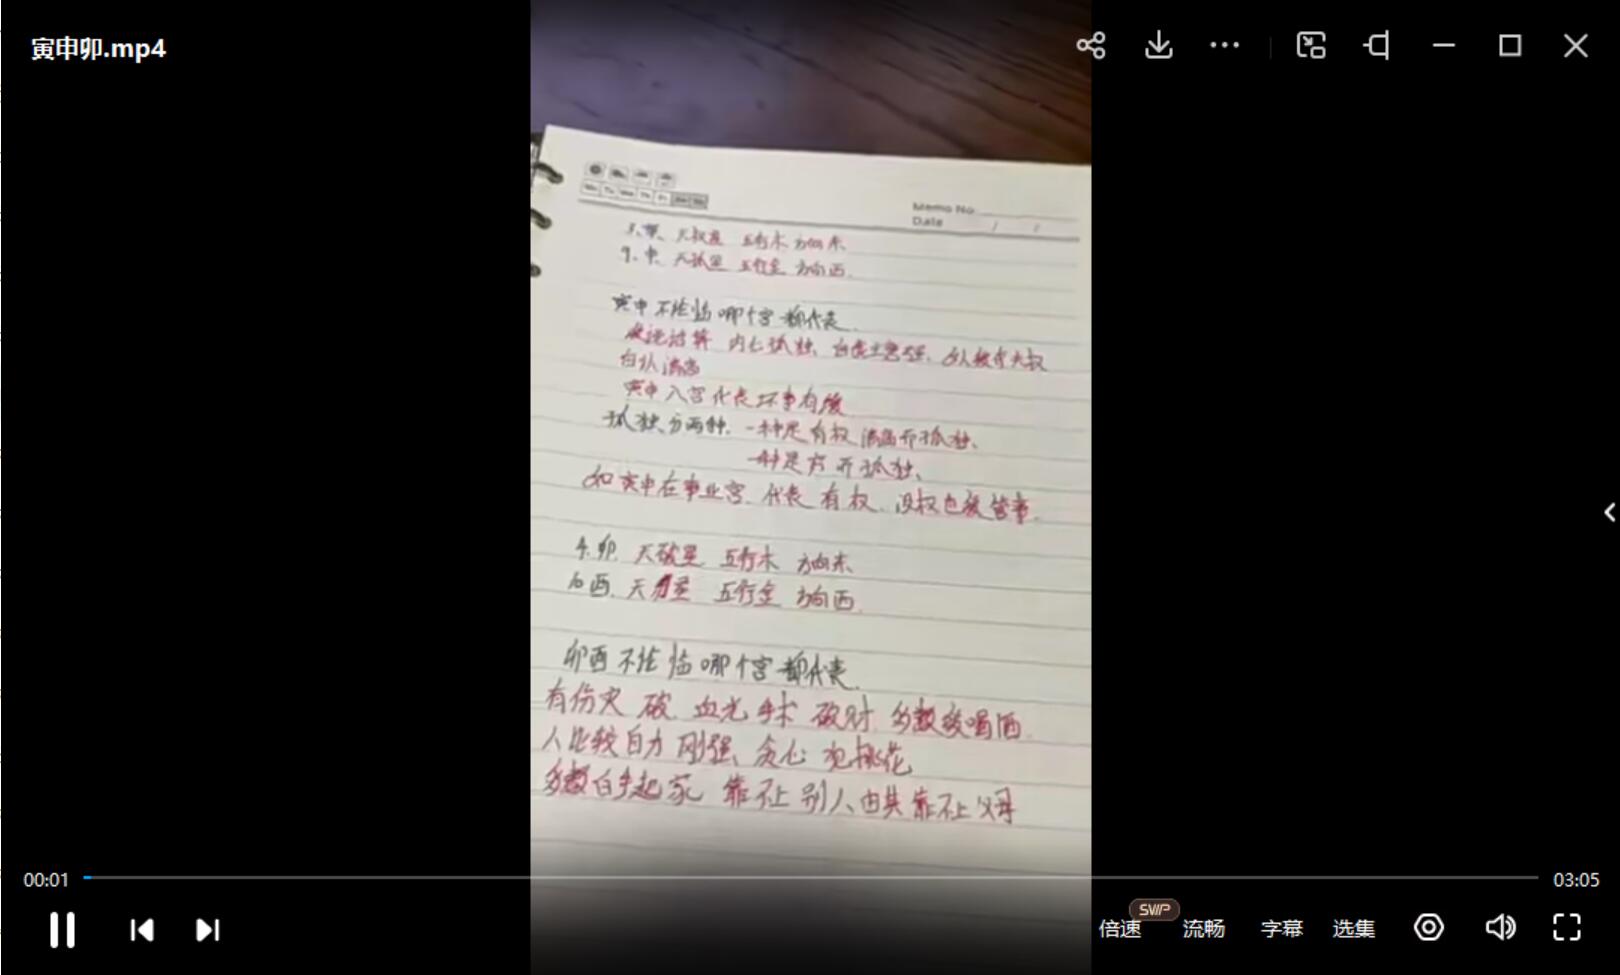 寅申卯.mp4
Memo No
Date / /
3.寅 天权星 五行木 方向东
9.申 天孤星 五行金 方向西.
寅申不论临哪个宫都代表.
内心孤独
白认清高
寅申入宫代表坏事有缘
孤独分两种. 一种是有权清高而孤独、
一种是穷而孤独、
如寅申在事业宫. 代表有权. 没权也被管事.
4.卯. 天破星 五行木 方向东
10酉. 天刃星 五行金 方向西.
卯酉不论临哪个宫都代表.
有伤灾 破. 血光 手术 破财. 多数爱喝酒.
人比较自力 刚强、贪心 犯桃花
多数白手起家 靠不上别人由其靠不上父母
00:01
03:05
SVIP
倍速 流畅 字幕 选集